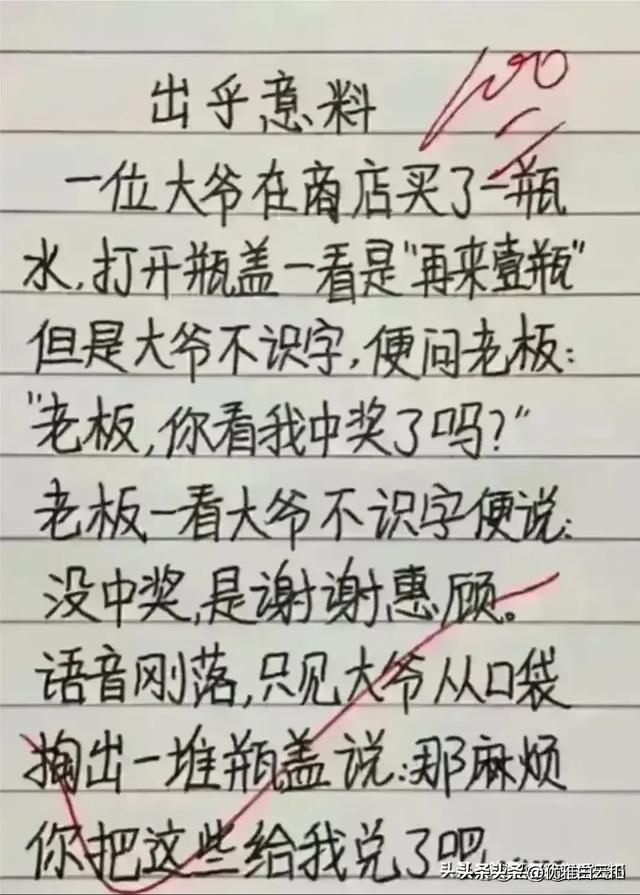 100
出乎意料
一位大爷在商店买了一瓶
水,打开瓶盖一看是"再来壹瓶"
但是大爷不识字,便问老板:
"老板,你看我中奖了吗?"
老板一看大爷不识字便说:
没中奖,是谢谢惠顾。
语音刚落,只见大爷从口袋
掏出一堆瓶盖说:那麻烦
你把这些给我兑了吧
头条头条@优雅白云